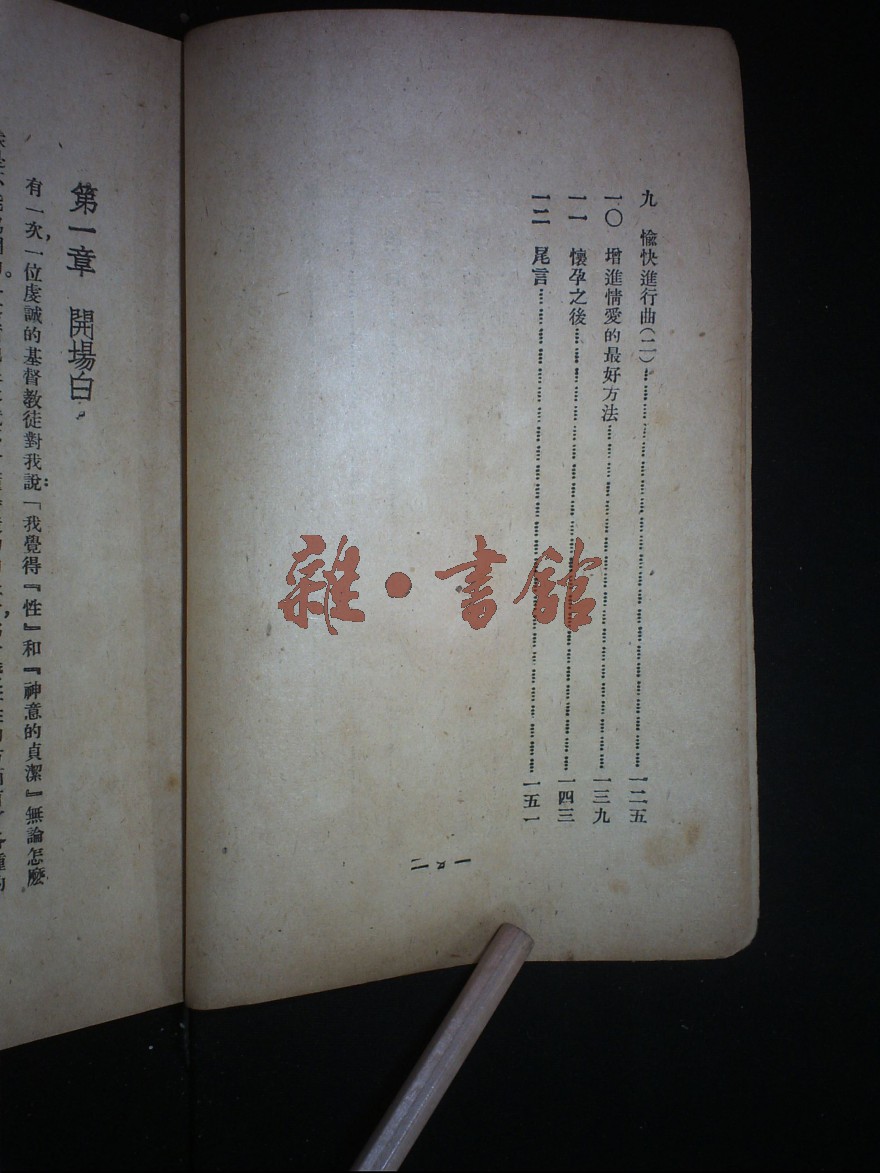 九　愉快進行曲(二)…………一二五
一〇　增進情愛的最好方法…………一三九
一一　懷孕之後…………一四三
一二　尾言…………一五一
雜·書館
第一章　開場白
有一次，一位虔誠的基督教徒對我說：「我覺得『性』和『神意的貞潔』無論怎麽